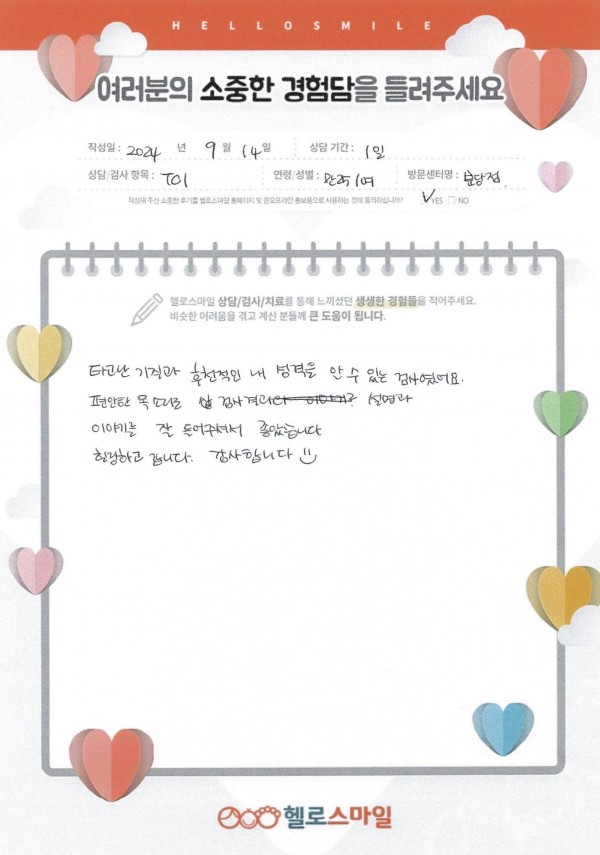 HELLOSMILE
여러분의 소중한 경험담을 들려주세요
작성일 : 2024 년 9 월 14 일 상담 기간 : 1일
상담/검사 항목 : TCI 연령/성별 : 만 /여 방문센터명 : 분당점
작성해 주신 소중한 후기를 헬로스마일 홈페이지 및 온오프라인 홍보용으로 사용하는 것에 동의하십니까? YES NO
헬로스마일 상담/검사/치료를 통해 느끼셨던 생생한 경험들을 적어주세요.
비슷한 어려움을 겪고 계신 분들께 큰 도움이 됩니다.
타고난 기질과 후천적인 내 성격을 안 수 있는 검사였어요.
편안한 목소리로 검사결과 설명과
이야기를 잘 들어주셔서 좋았습니다
힐링하고 갑니다. 감사합니다
헬로스마일